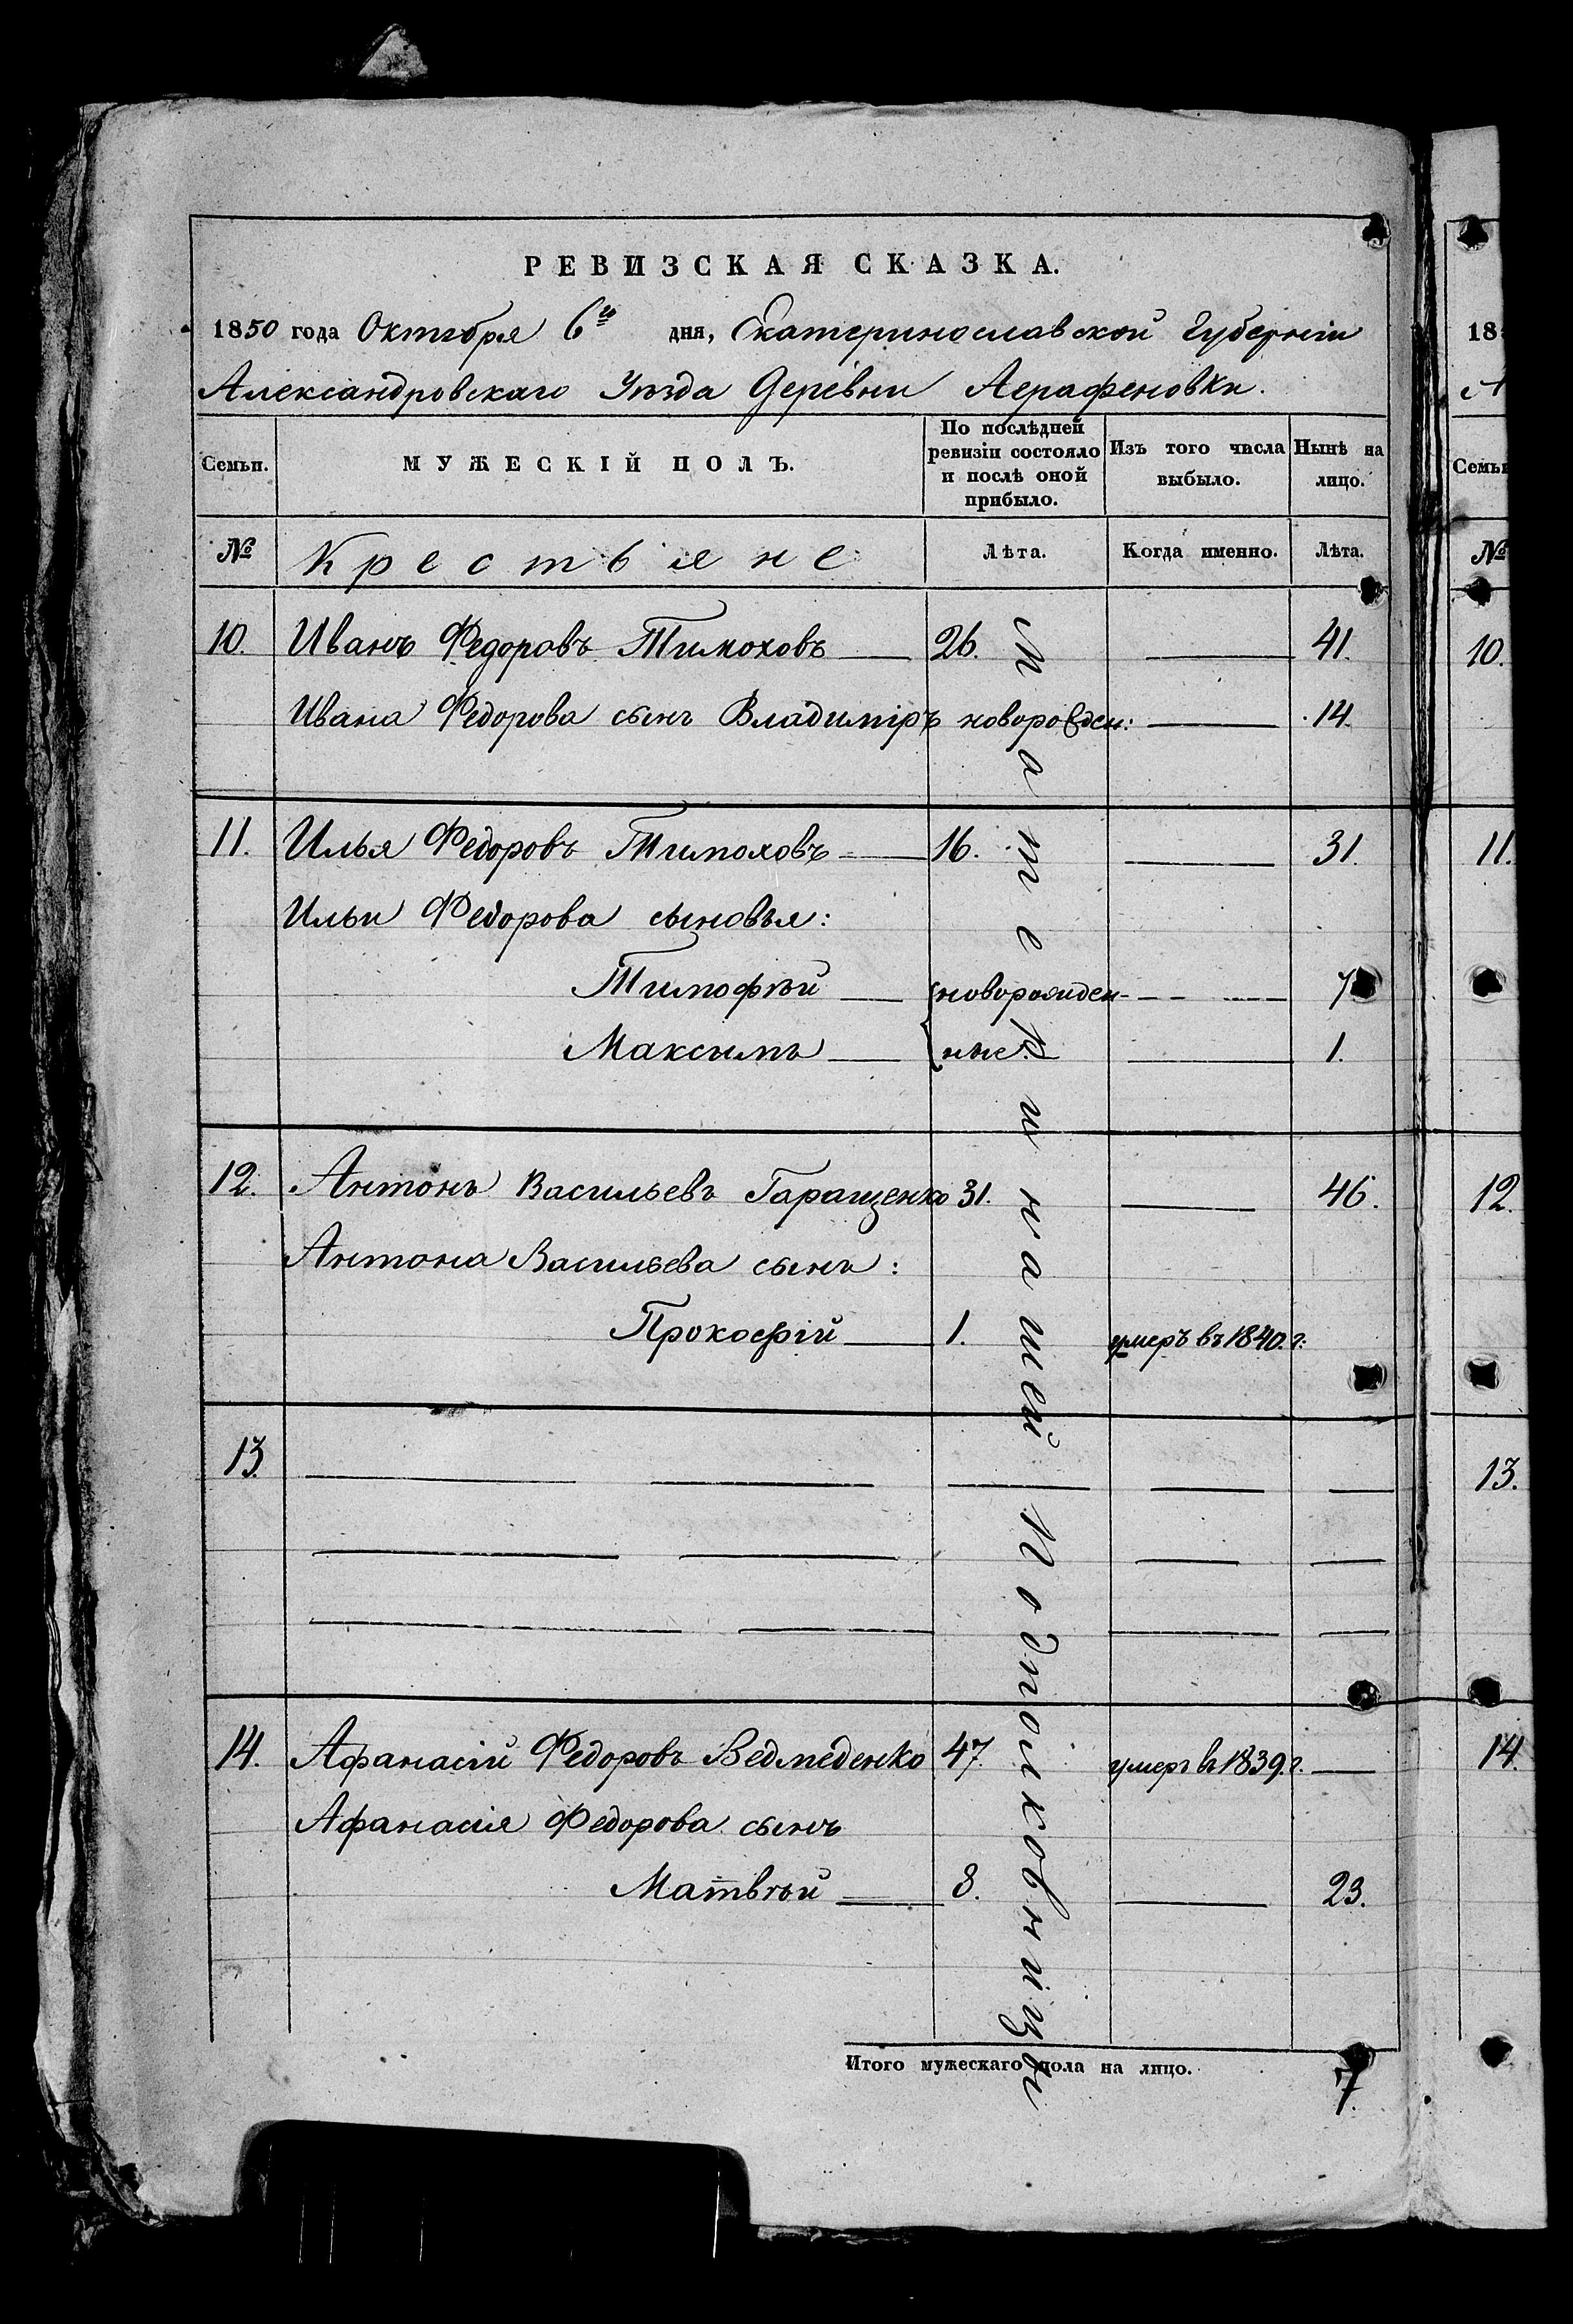 РЕВИЗСКАЯ СКАЗКА.
1850 года Октября 6го дня, Екатеринославской Губерніи
Александровскаго Уѣзда Деревни Аграфеновки.
Семьи.
МУЖЕСКІЙ ПОЛЪ.
По послѣдней ревизіи состояло и послѣ оной прибыло.
Изъ того числа выбыло.
Нынѣ на лицо.
№ Крестьяне Лѣта. Когда именно. Лѣта.
10. Иванъ Федоровъ Тимоховъ 26. 41.
Ивана Федорова сынъ Владиміръ новорожден: 14.
11. Илья Федоровъ Тимоховъ 16. 31.
Ильи Федорова сыновья:
Тимофѣй новорожден- 7
Максимъ ные. 1.
12. Антонъ Васильевъ Гаращенко 31. 46.
Антона Васильева сынъ:
Прокофій 1. умеръ въ 1840. г:
13.
14. Афанасій Федоровъ Ведмеденко 47. умеръ въ 1839. г.
Афанасія Федорова сынъ
Матвѣй 8. 23.
Итого мужескаго пола на лицо. 7.
18
А
Семьи
№
10.
11.
12.
13.
14.